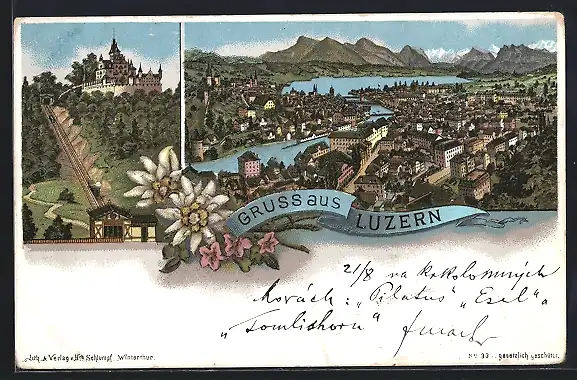 GRUSS aus LUZERN
21/8 na krkolomných
horách: "Pilatus" "Esel" a
"Tomlishorn"
Lith. & Verlag v. Hch. Schlumpf, Winterthur.
No 93. gesetzlich geschützt.